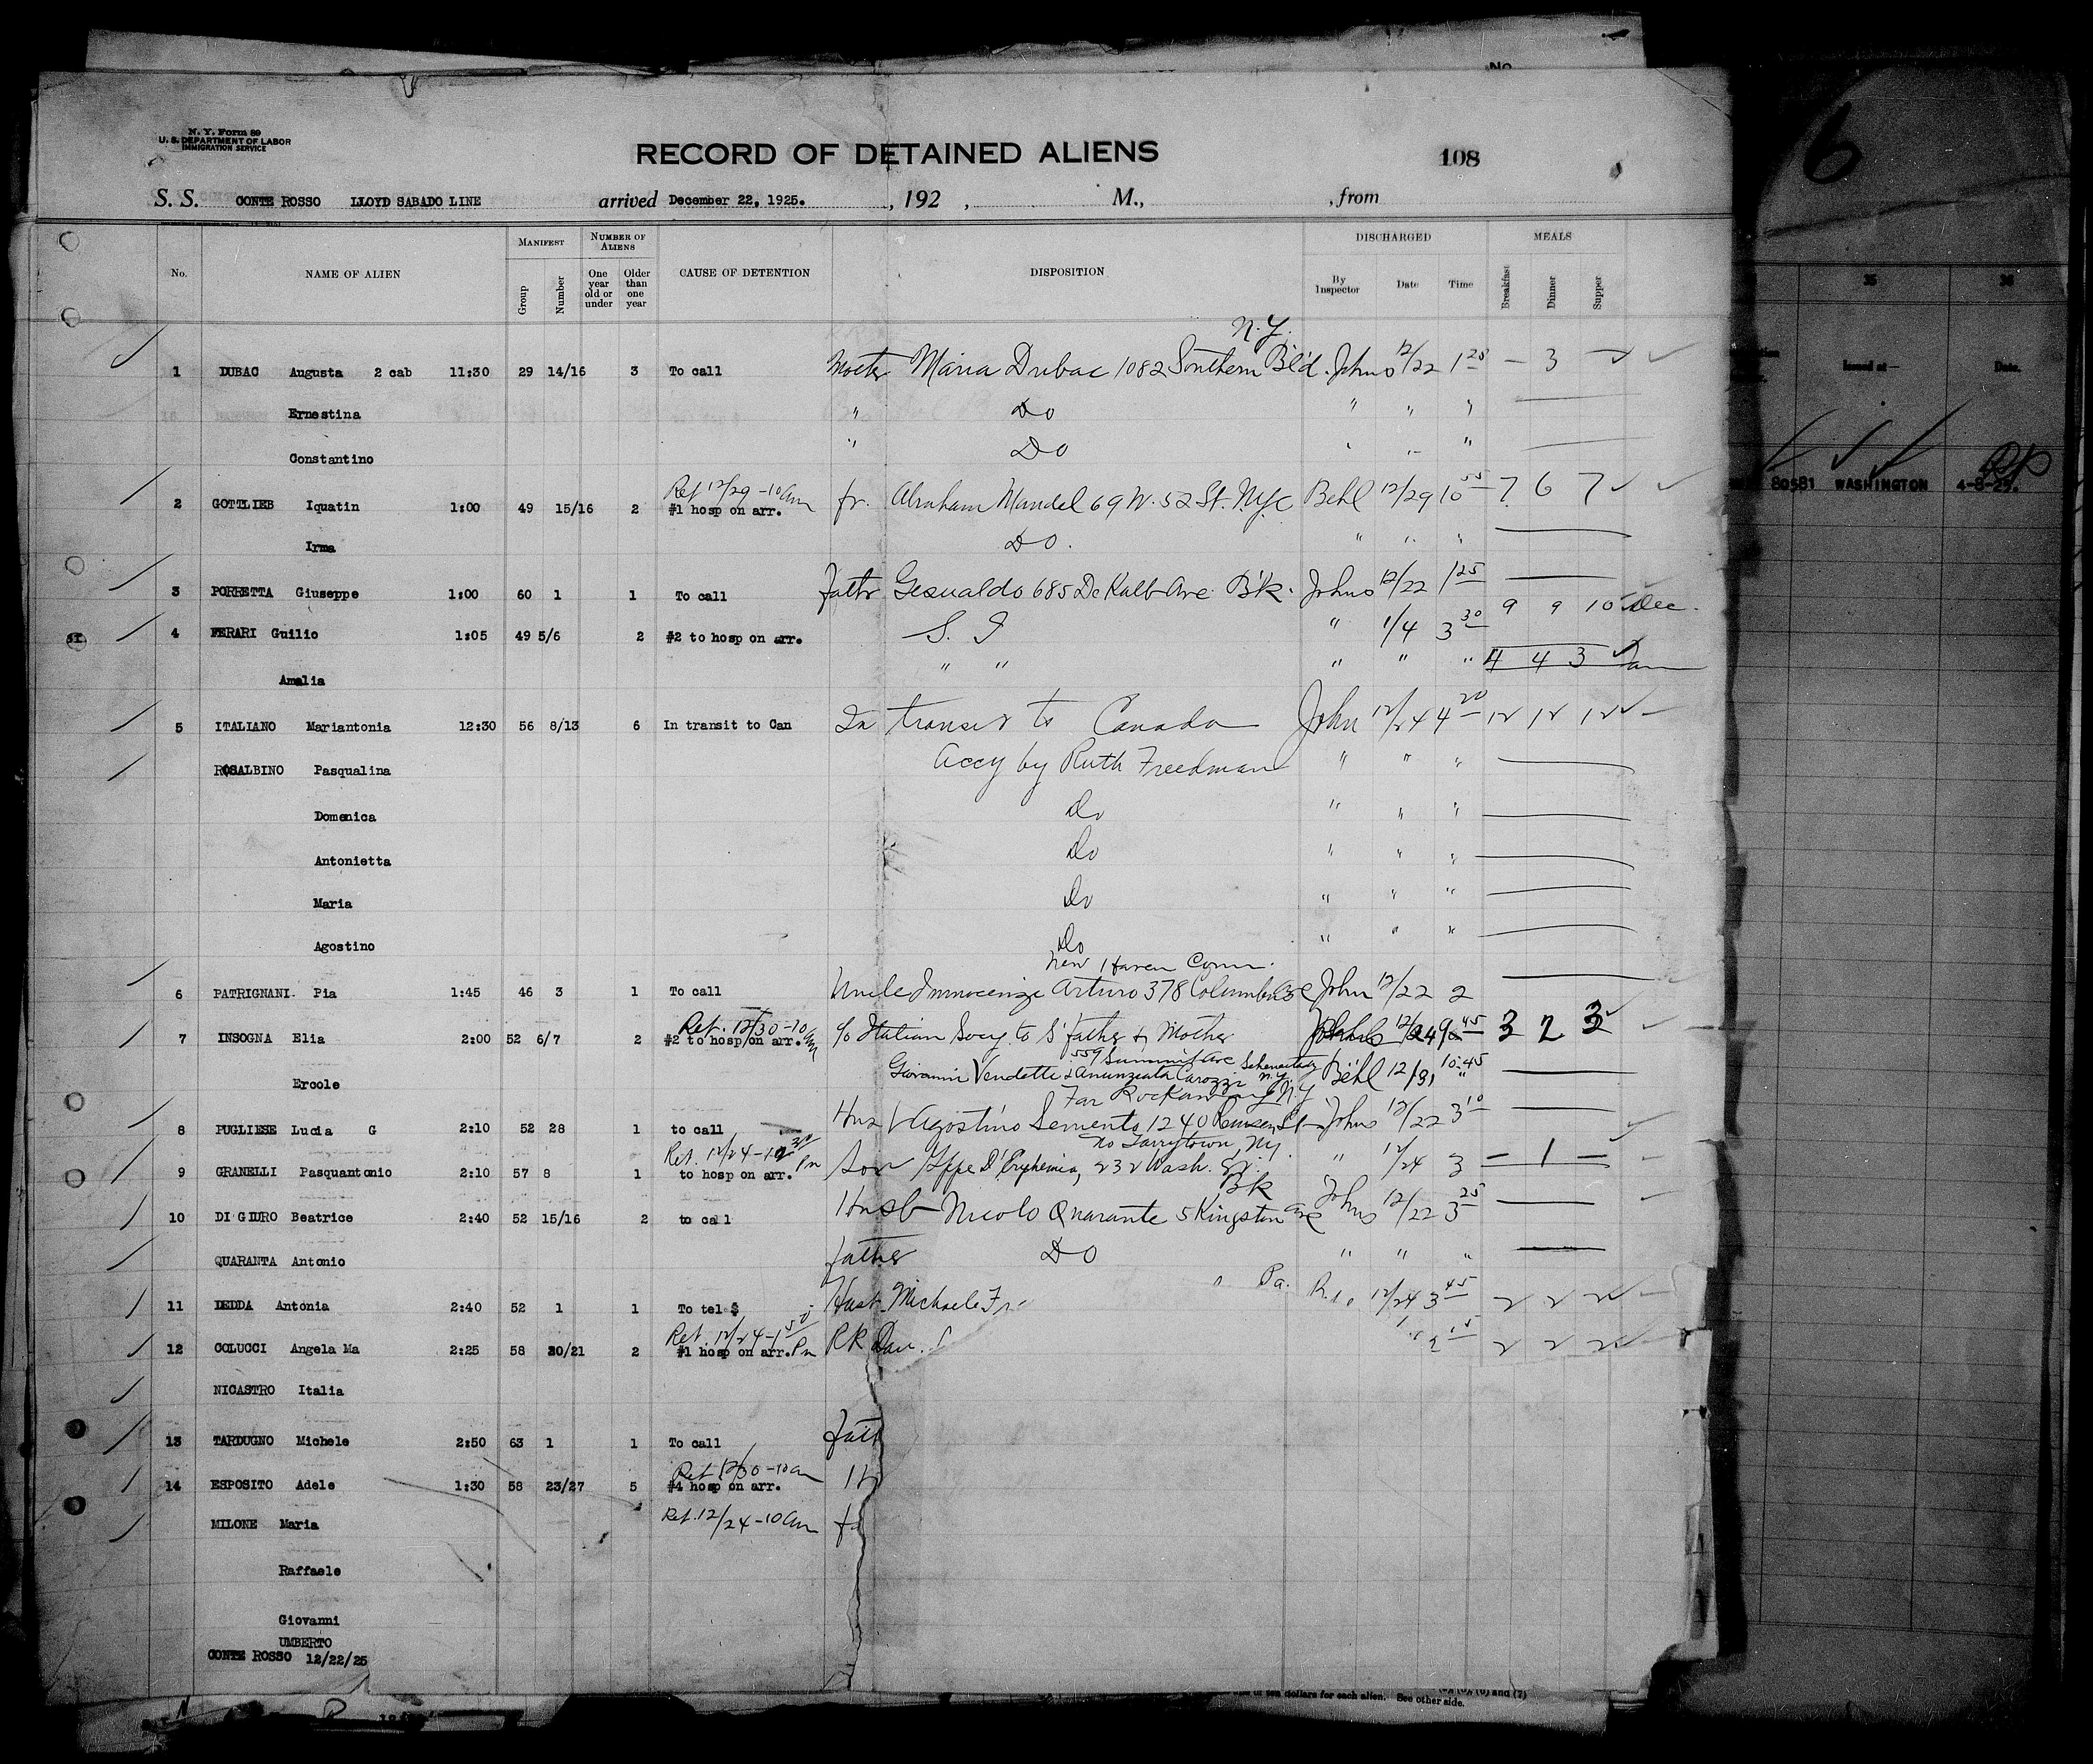 No.
N. Y. Form 89
U. S. DEPARTMENT OF LABOR
IMMIGRATION SERVICE
RECORD OF DETAINED ALIENS
108
6
S. S. CONTE ROSSO LLOYD SABADO LINE arrived December 22, 1925. , 192 , M., , from
No. NAME OF ALIEN MANIFEST Group Number NUMBER OF ALIENS One year old or under Older than one year CAUSE OF DETENTION DISPOSITION DISCHARGED By Inspector Date Time MEALS Breakfast Dinner Supper
35 36
Issued at— Date.
80581 WASHINGTON 4-8-25.
N.Y.
1 DUBAC Augusta 2 cab 11:30 29 14/16 3 To call Maria Dubac 1082 Southern Bld. Johns 12/22 1 25 — 3 —
Ernestina " Do " " "
Constantino " Do " " "
Ret 12/29 - 10 am
2 GOTTLIEB Iquatin 1:00 49 15/16 2 #1 hosp on arr. fr. Abraham Mandel 69 W. 52 St. NYC Behl 12/29 10 55 7 6 7
Irma Do. " " "
3 PORRETTA Giuseppe 1:00 60 1 1 To call Fathr Gesualdo 685 DeKalb Ave Bk. Johns 12/22 1 25
4 FERARI Guilio 1:05 49 5/6 2 #2 to hosp on arr. S. I " 1/4 3 30 9 9 10 Dec.
Amalia " " " " " 4 4 3 Jan
5 ITALIANO Mariantonia 12:30 56 8/13 6 In transit to Can In transit to Canada John 12/24 4 20 12 12 12
ROSALBINO Pasqualina Accy by Ruth Freedman " " "
Domenica Do " " "
Antonietta Do " " "
Maria Do " " "
Agostino Do " " "
New Haven Conn.
6 PATRIGNANI Pia 1:45 46 3 1 To call Uncle Arturo 378 Columbus John 12/22 2
Ret. 12/30 - 10 am
7 INSOGNA Elia 2:00 52 6/7 2 #2 to hosp on arr. c/o Italian Socy. to S' father & Mother 45 3 2 3
559 Summit Ave Schenectady N.Y.
Ercole Giovanni Vendetti & Anunziata Carozzi Behl 12/31 10-45
Far Rockaway N.Y
8 PUGLIESE Lucia G 2:10 52 28 1 to call Agostino Sements 1240 Johns 12/22 3 10
Ret. 12/24
No Tarrytown, N.Y.
9 GRANELLI Pasquantonio 2:10 57 8 1 to hosp on arr. Son 232 Wash. St. " 12/24 3 — 1 —
Bk
10 DI GIURO Beatrice 2:40 52 15/16 2 to call Husb Nicolo Quarante 5 Kingston Ave Johns 12/22 3 25
QUARANTA Antonio father Do " " "
Pa.
11 DEDDA Antonia 2:40 52 1 1 To tel $ Husb Michaele 12/24 3 45 2 2 2
Ret. 12/24 - 1 50 Pm
12 COLUCCI Angela Ma 2:25 58 20/21 2 #1 hosp on arr. RR 2 2 2
NICASTRO Italia
13 TARDUGNO Michele 2:50 63 1 1 To call fath
Ret 12/30 - 10 am
14 ESPOSITO Adele 1:30 58 23/27 5 #4 hosp on arr.
MILONE Maria Ret. 12/24 - 10 am
Raffaele
Giovanni
UMBERTO
CONTE ROSSO 12/22/25
ten dollars for each alien. See other side.